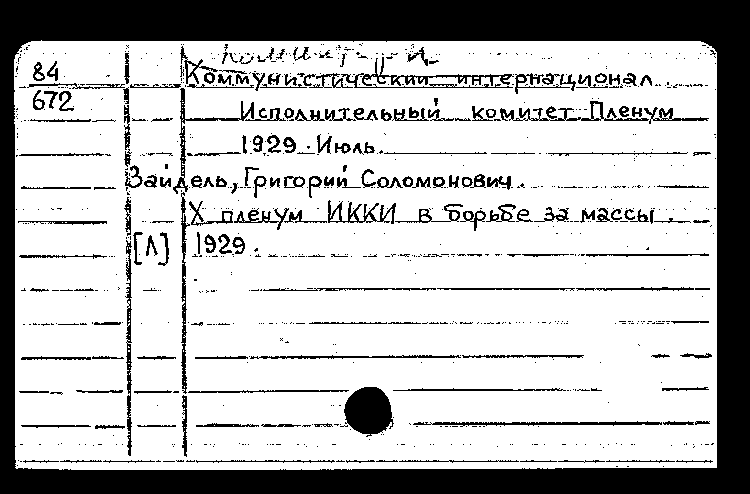 Коминтерн
84 Коммунистический интернационал.
672 Исполнительный комитет Пленум
1929. Июль.
Зайдель, Григорий Соломонович.
X пленум ИККИ в борьбе за массы.
[Л] 1929.